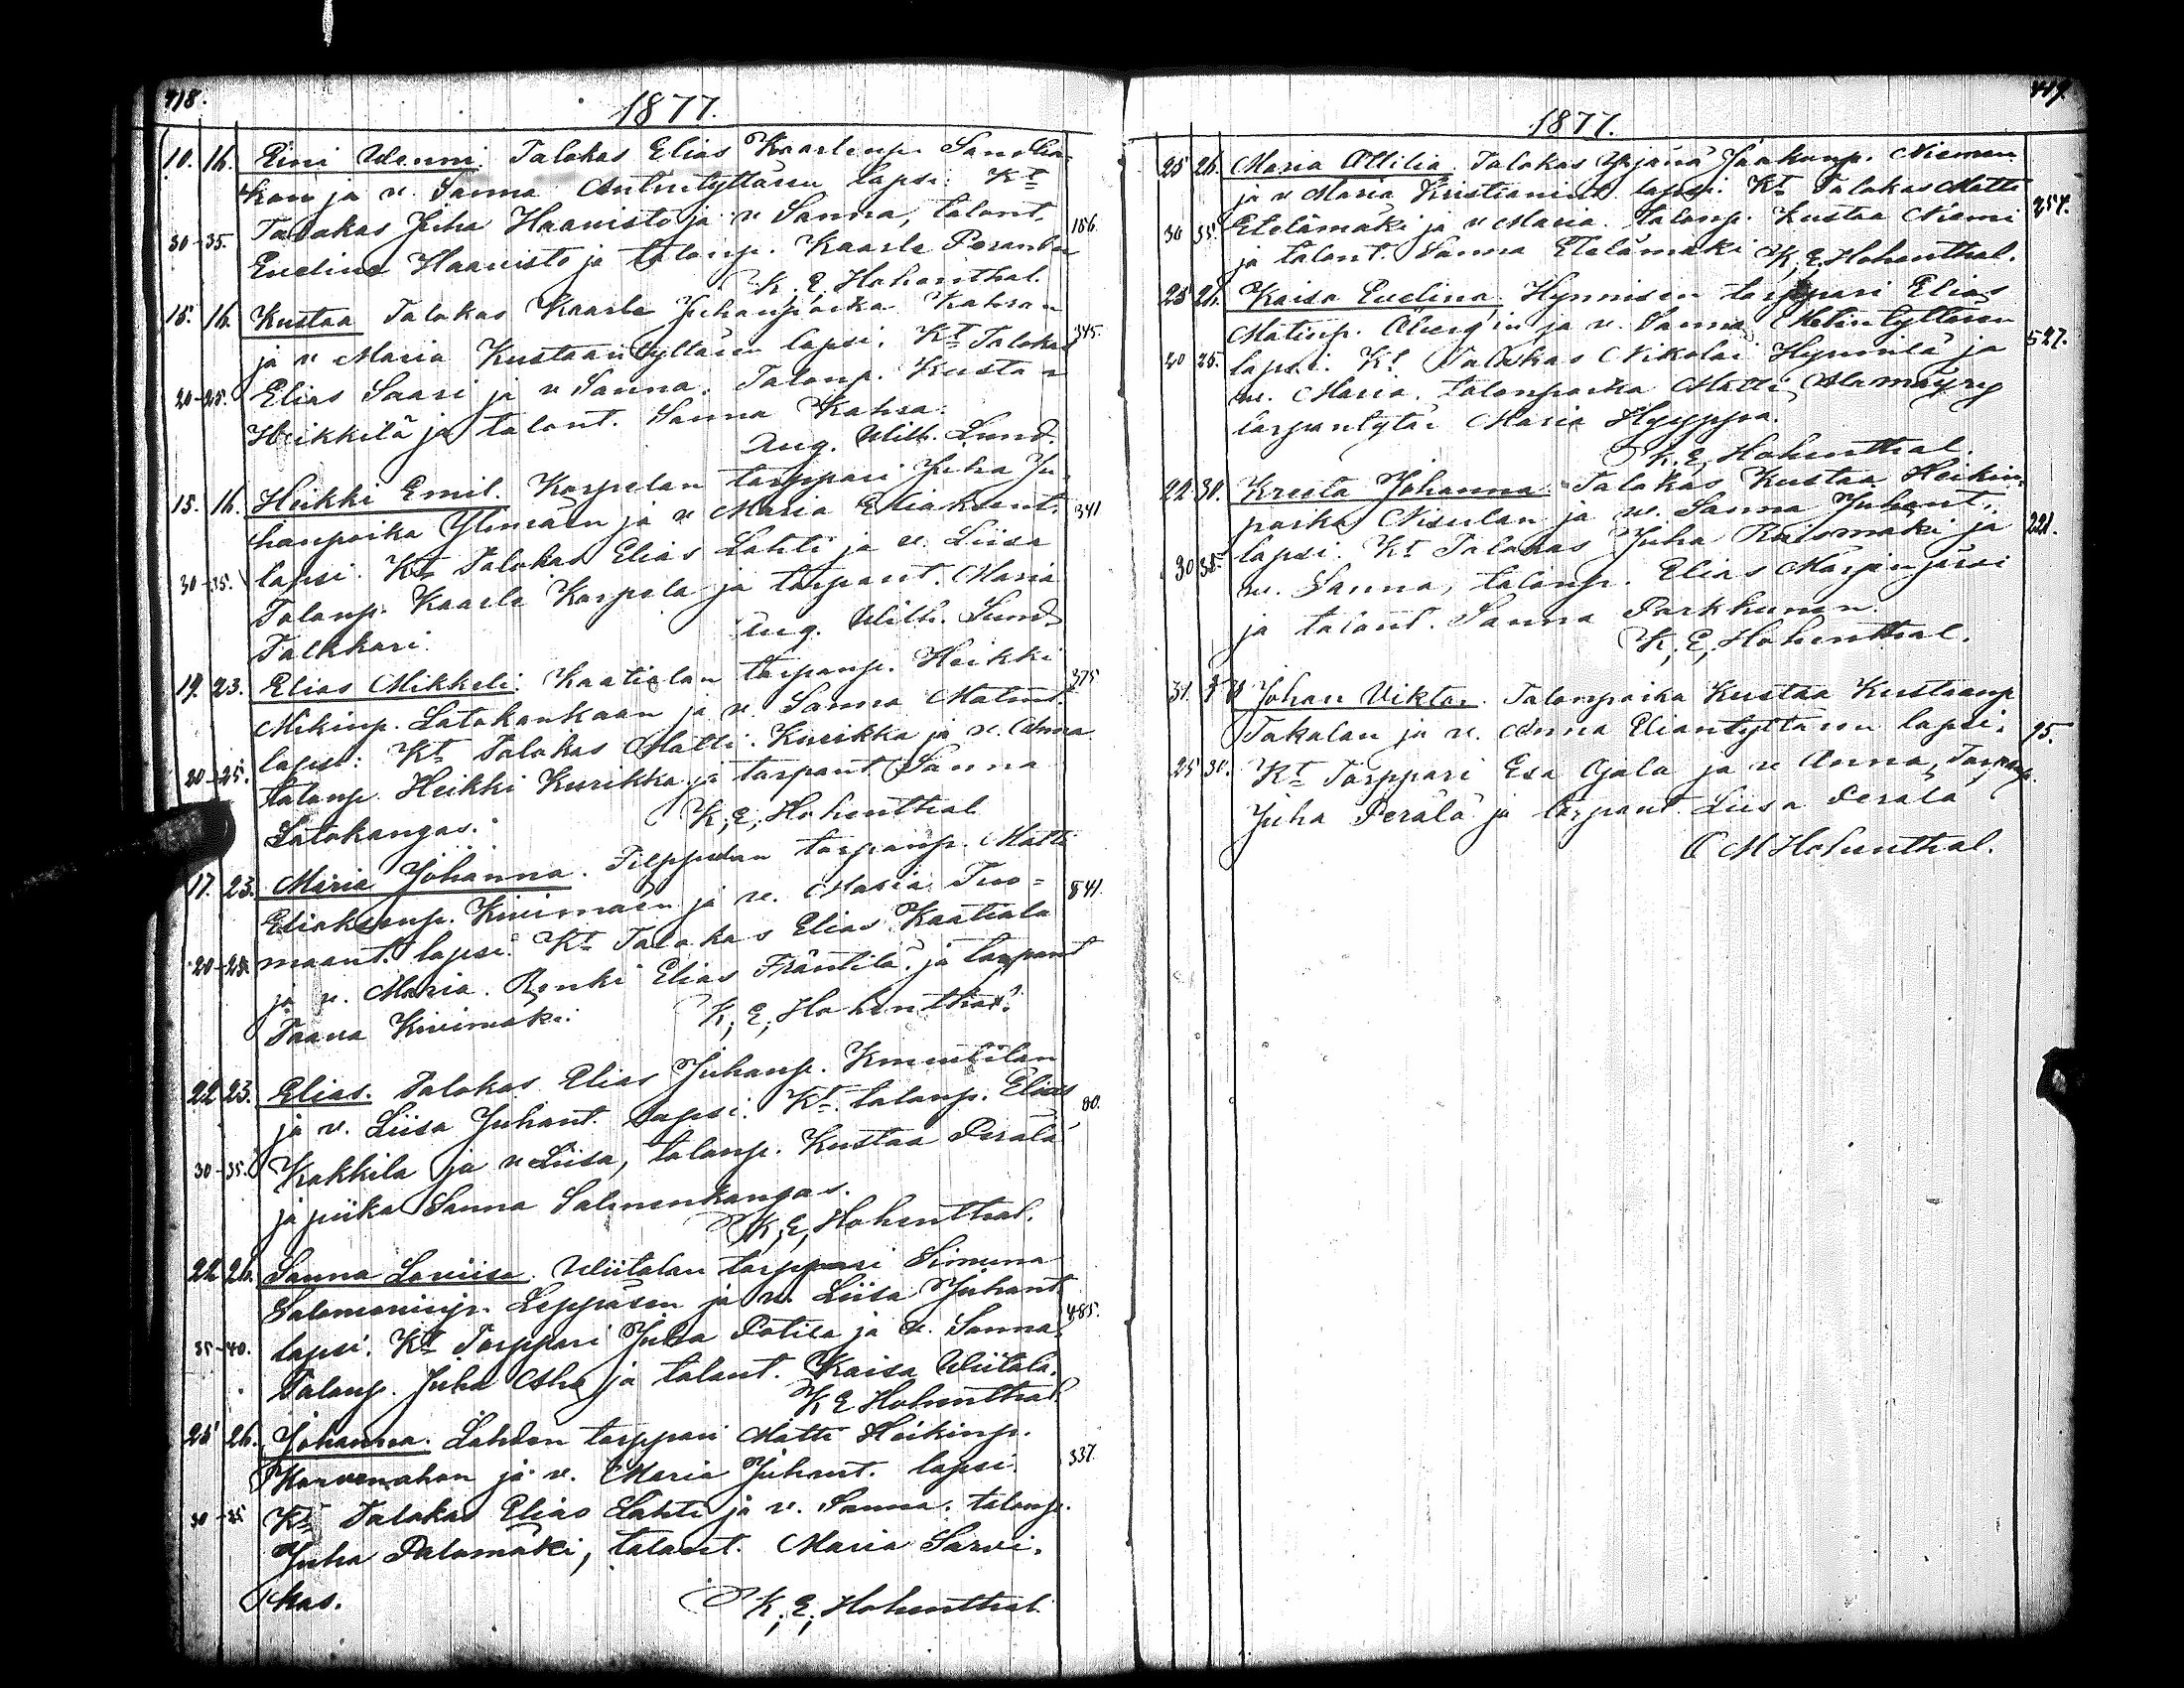 418.
1877.
10. 16. Eini Wenni. Talokas Elias Kaarlenp. Sandba-
kan ja v. Sanna Antintyttären lapsi: Kt
Talokas Juha Haavisto ja v Sanna, talont. 186.
30-35. Evelina Haavisto ja talonp. Kaarle Peranka
K. E. Hohenthal.
15. 16. Kustaa Talokas Kaarle Juhanpoika Kahran
ja v Maria Kustaantyttären lapsi. Kt Talokas 345.
20-25. Elias Saari ja v Sanna. Talonp. Kustaa
Heikkilä ja talont. Sanna Kahra.
Aug. Wilh. Lund.
15. 16. Heikki Emil. Karpelan torppari Juha Ju-
hanpoika Ylimäen ja v Maria Eliaksent. 341
lapsi. Kt Talokas Elias Lahti ja v. Liisa
30-35. Talonp. Kaarle Karpela ja torpant. Maria
Talkkari. Aug. Wilh. Lund
19. 23. Elias Mikkeli. Kaatialan torpanp. Heikki
Mikinp. Latokankaan ja v. Sanna Matint. 375
lapsi: Kt Talokas Matti Kurikka ja v. Anna
20-25. talonp. Heikki Kurikka ja torpant Sanna
Latokangas. K. E. Hohenthal
17. 23. Maria Johanna. Filppulan torpanp. Matti
Eliaksenp. Kivimäen ja v. Maria Tuo= 841.
20-25 maant. lapsi. Kt Talokas Elias Kaatiala
ja v. Maria. Renki Elias Fräntilä. ja torpant
Taava Kivimäki. K. E. Hohenthal.
22 23. Elias. Talokas Elias Juhanp. Knuutilan
ja v. Liisa Juhant. lapsi. Kt. talonp. Elias 80.
30-35. Kakkila ja v Liisa, talonp. Kustaa Perälä
ja piika Sanna Salmenkangas.
K. E. Hohenthal.
22 26. Sanna Loviisa. Wiitalan torppari Simuna
Salomoninp. Leppäsen ja v. Liisa Juhant. 485.
35-40. lapsi. Kt Torppari Juha Potila ja v. Sanna.
Talonp. Juha Aho ja talont. Kaisa Wiitala.
K E Hohenthal
25 26. Johanna. Lahden torppari Matti Heikinp.
Korvenahon ja v. Maria Juhant. lapsi. 337.
30-35 Kt Talokas Elias Lahti ja v. Sanna. talonp.
Juha Palomäki, talont. Maria Sarvi-
kas. K. E. Hohenthal
419.
1877.
25 26. Maria Ottilia. Talokas Yrjänä Jaakonp. Niemen
ja v Maria Kristianint. lapsi. Kt Talokas Matti 257.
30 35. Etelämäki ja v Maria. talonp. Kustaa Niemi
ja talont. Sanna Etelämäki K. E. Hohenthal.
25 26. Kaisa Evelina. Hynnisen torppari Elias
Matinp. Åbergin ja v. Sanna Matintyttären 527.
20 25. lapsi. Kt Talokas Nikolai Hynnilä ja
v. Maria. talonpoika Matti Alamäyry
torpantytär Maria Hyyppä.
K. E. Hohenthal.
22 30. Kreeta Johanna. Talokas Kustaa Heikin-
poika Nisulan ja v. Sanna Juhant. 221.
30 35. lapsi. Kt Talokas Juha Ruismäki ja
v. Sanna, talonp. Elias Marjanjärvi
ja talont. Sanna Parkkunen.
K. E. Hohenthal.
31. Johan Viktor. Talonpoika Kustaa Kustaanp
Takalan ja v. Anna Eliantyttären lapsi. 95.
25 30. Kt Torppari Esa Ojala ja v Anna, Torpanp.
Juha Perälä ja torpant. Liisa Perälä
O M Hohenthal.